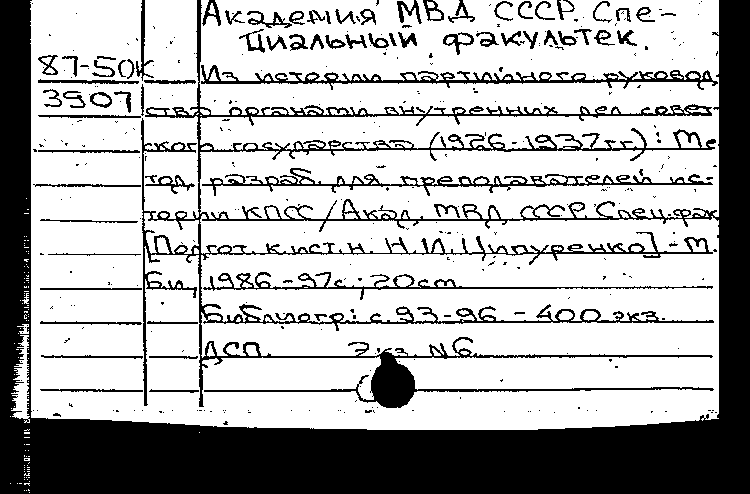 Академия МВД СССР. Спе-
циальный факультек.
87-50К Из истории партийного руковод-
3907 ства органами внутренних дел совет-
ского государства (1926-1937гг.): Ме
тод. разраб. для преподавателей ис-
тории КПСС / Акад. МВД СССР. Спец. фак
[Подгот. к.ист.н. Н.И. Ципуренко] - М.
Би, 1986. - 97с.; 20cm.
Библиогр.: с. 93-96. - 400 экз.
ДСП. Экз. N6.